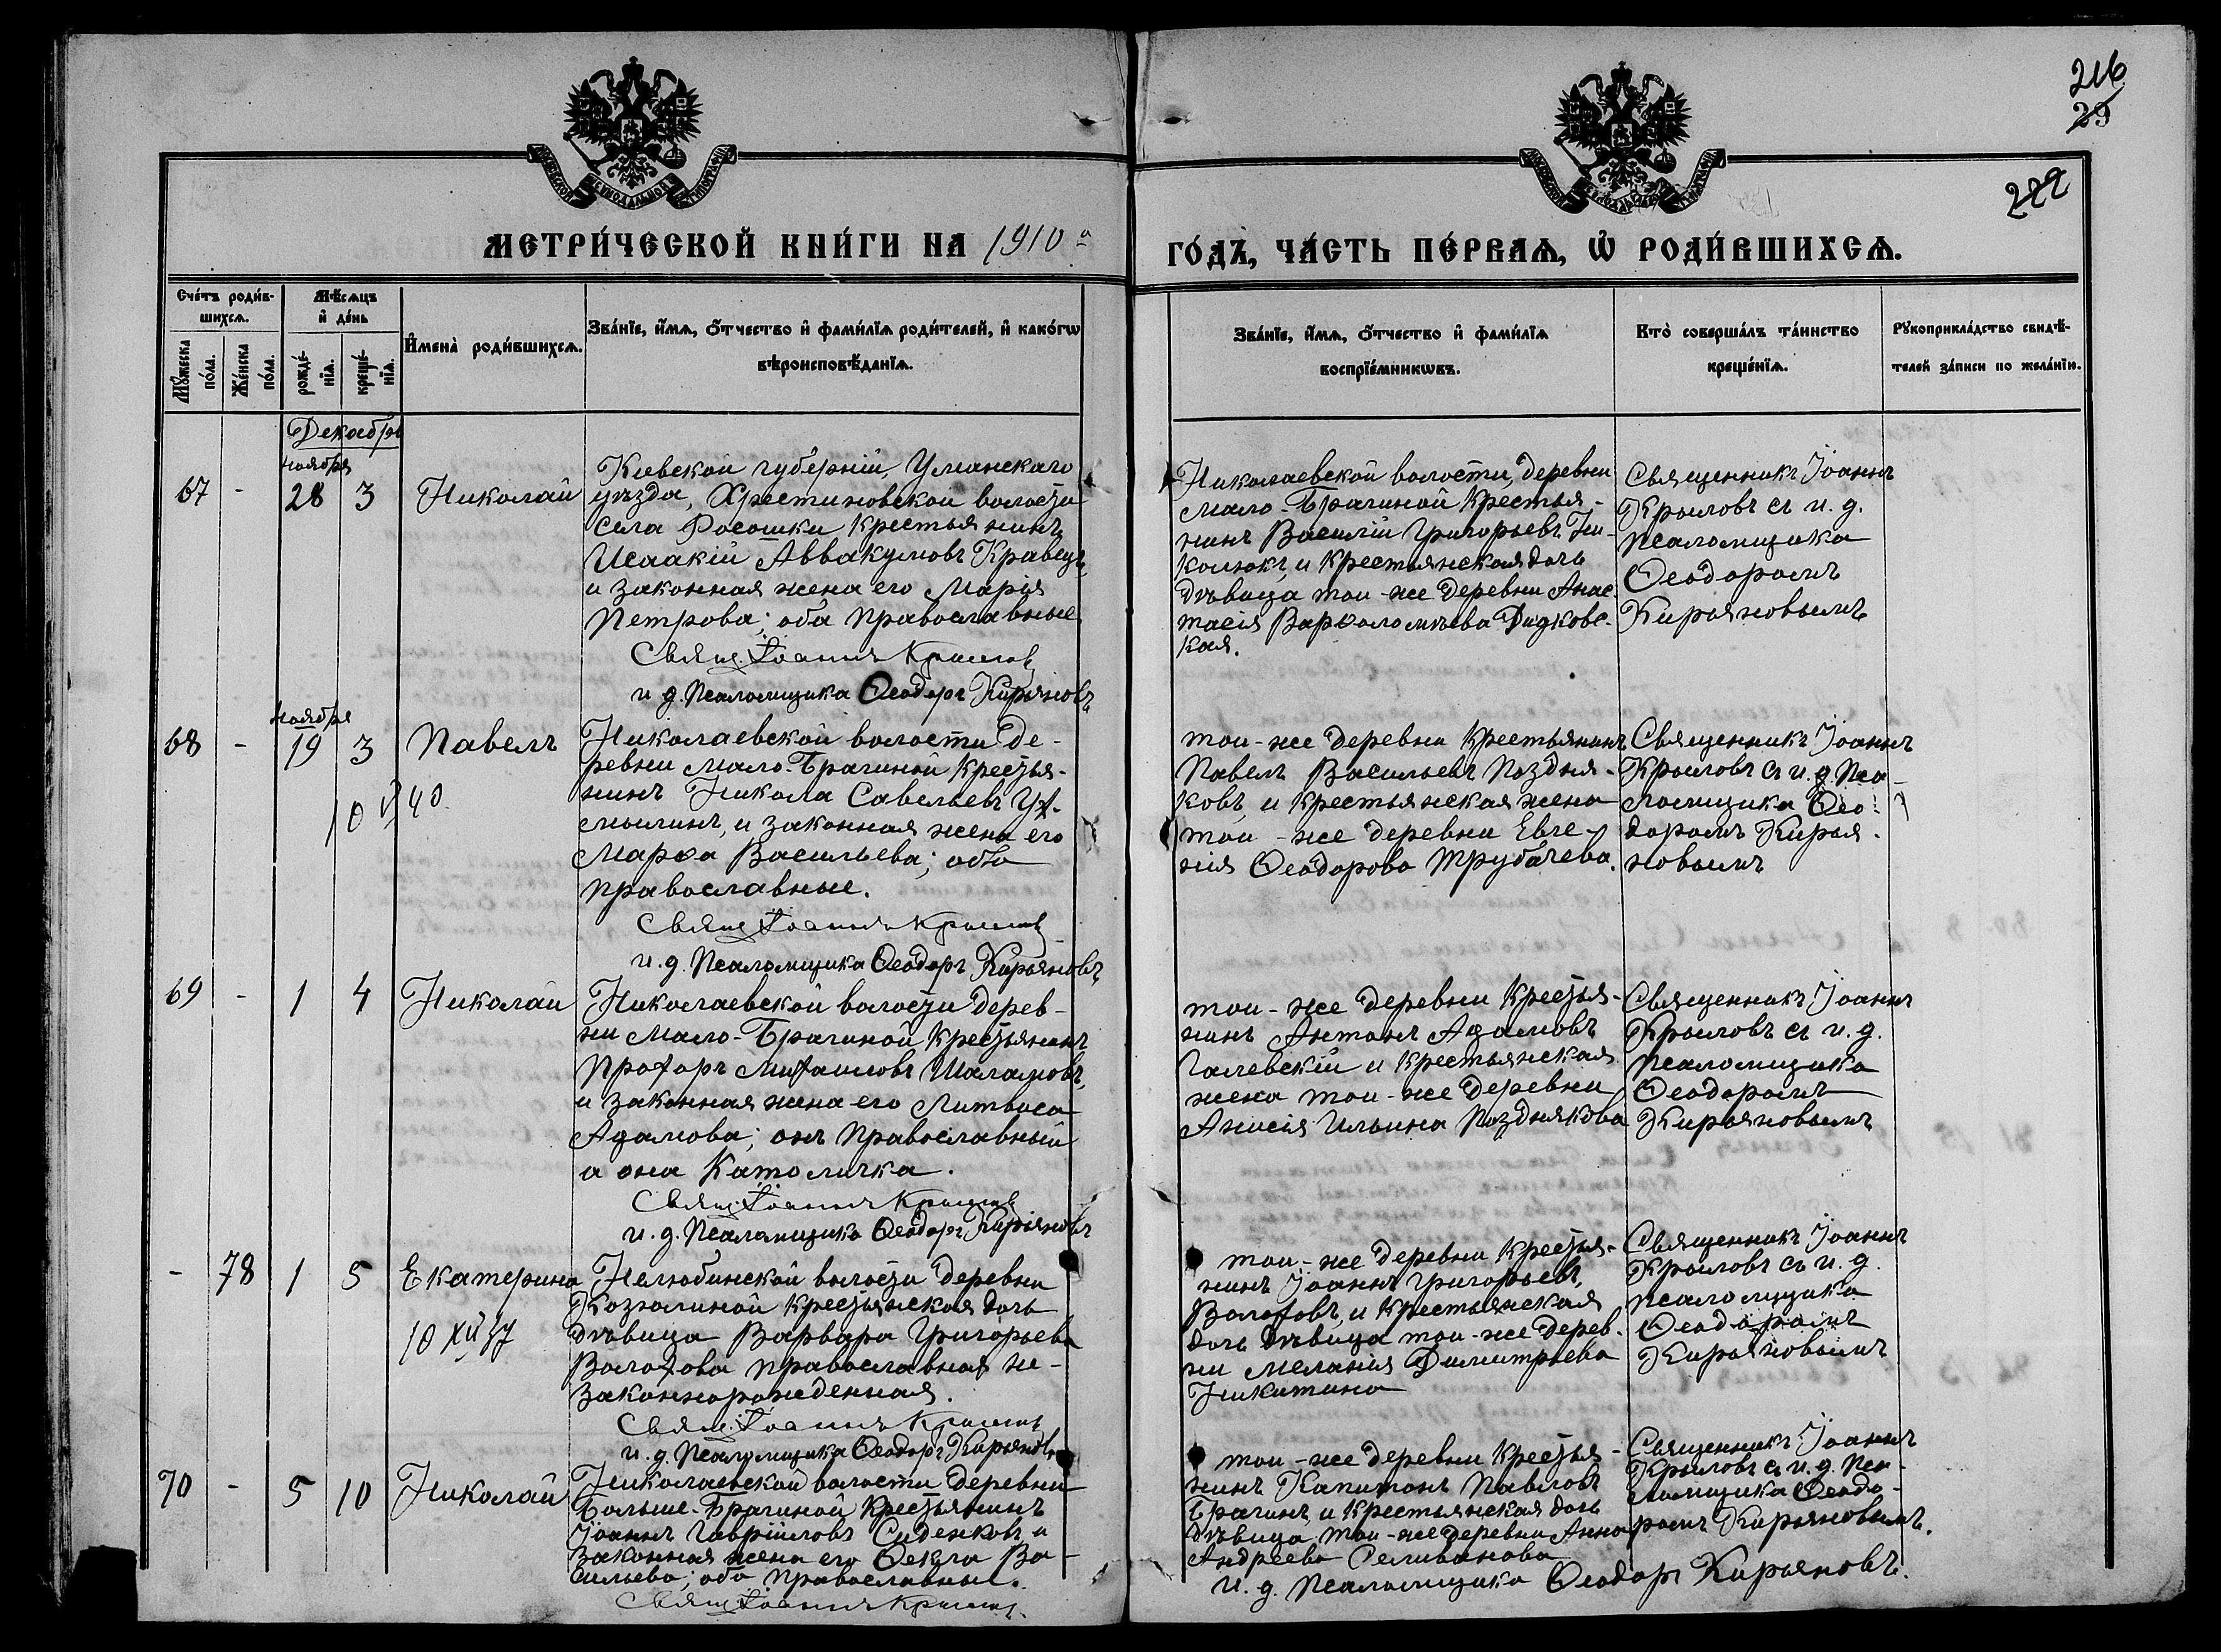 216
29
222
МЕТРИ́ЧЕСКОЙ КНИ́ГИ НА 1910 ГО́ДЪ, ЧА́СТЬ ПЕ́РВАѦ, Ѡ҆ РОДИ́ВШИХСѦ.
Сче́тъ роди́в-
шихсѧ.
Мꙋ́жеска по́ла.
Же́нска по́ла.
Мѣ́сѧцъ
и҆ де́нь
рожде́-
нїѧ.
креще́-
нїѧ.
И҆мена̀ роди́вшихсѧ.
Зва́нїе, и҆́мѧ, ѻ҆́тчество и҆ фами́лїѧ роди́телей, и҆ како́гѡ
вѣроисповѣ́данїѧ.
Зва́нїе, и҆́мѧ, ѻ҆́тчество и҆ фами́лїѧ
воспрїе́мникѡвъ.
Кто̀ соверша́лъ та́инство
креще́нїѧ.
Рꙋкоприкла́дство свидѣ́-
телей за́писи по жела́нїю.
Декабрь
ноября
67 - 28 3 Николай
Кіевской губерніи Уманскаго
уѣзда, Христиновской волости
села Росошки крестьянинъ
Исаакій Аввакумовъ Кравецъ,
и законная жена его Марія
Петрова; оба православные
Свящ. Іоаннъ Крыловъ
и. д. Псаломщика Ѳеодоръ Кирьяновъ
Николаевской волости, деревни
Мало-Брагиной крестья-
нинъ Василій Григорьевъ Ни-
колюкъ, и крестьянская дочь
дѣвица той-же деревни Анас-
тасія Варѳоломѣева Дидковс-
кая.
Священникъ Іоаннъ
Крыловъ съ и. д.
псаломщика
Ѳеодоромъ
Кирьяновымъ
ноября
68 - 19 3 Павелъ
10 V 40
Николаевской волости де-
ревни Мало-Брагиной крестья-
нинъ Никола Савельевъ
и законная жена его
Марѳа Васильева; оба
православные.
Свящ. Іоаннъ Крыловъ
и. д. Псаломщика Ѳеодоръ Кирьяновъ
той-же деревни крестьянинъ
Павелъ Васильевъ Поздня-
ковъ, и крестьянская жена
той-же деревни Евге-
нія Ѳеодорова Трубачева.
Священникъ Іоаннъ
Крыловъ съ и. д. Пса-
ломщика Ѳео-
доромъ Кирья-
новымъ
69 - 1 4 Николай
Николаевской волости дерев-
ни Мало-Брагиной крестьянинъ
Прохоръ Михаиловъ Шаламовъ,
и законная жена его
Адамова; онъ православный
а она католичка.
Свящ. Іоаннъ Крыловъ
и. д. Псаломщика Ѳеодоръ Кирьяновъ
той-же деревни крестья-
нинъ Антонъ Адамовъ
Галевскій и крестьянская
жена той-же деревни
Анисія Ильина Позднякова
Священникъ Іоаннъ
Крыловъ съ и. д.
псаломщика
Ѳеодоромъ
Кирьяновымъ
- 78 1 5 Екатерина
10 XII 37
Нелюбинской волости деревни
Козюлиной крестьянская дочь
дѣвица Варвара Григорьева
Волохова православная не-
законнорожденная.
Свящ. Іоаннъ Крыловъ
и. д. Псаломщика Ѳеодоръ Кирьяновъ
той-же деревни крестья-
нинъ Іоаннъ Григорьевъ,
Волоховъ, и крестьянская
дочь дѣвица той-же дерев-
ни Меланія Димитріева
Никитина
Священникъ Іоаннъ
Крыловъ съ и. д.
псаломщика
Ѳеодоромъ
Кирьяновымъ
70 - 5 10 Николай
Николаевской волости деревни
Больше-Брагиной крестьянинъ
Іоаннъ Гавріиловъ Сиденковъ и
законная жена его Ѳекла Ва-
сильева; оба православные.
Свящ. Іоаннъ Крыловъ.
той-же деревни крестья-
нинъ Капитонъ Павловъ
Брагинъ, и крестьянская дочь
дѣвица той-же деревни Анна
Андреева Селиванова
Священникъ Іоаннъ
Крыловъ съ и. д. Пса-
ломщика Ѳеодо-
ромъ Кирьяновымъ.
и. д. псаломщика Ѳеодоръ Кирьяновъ.